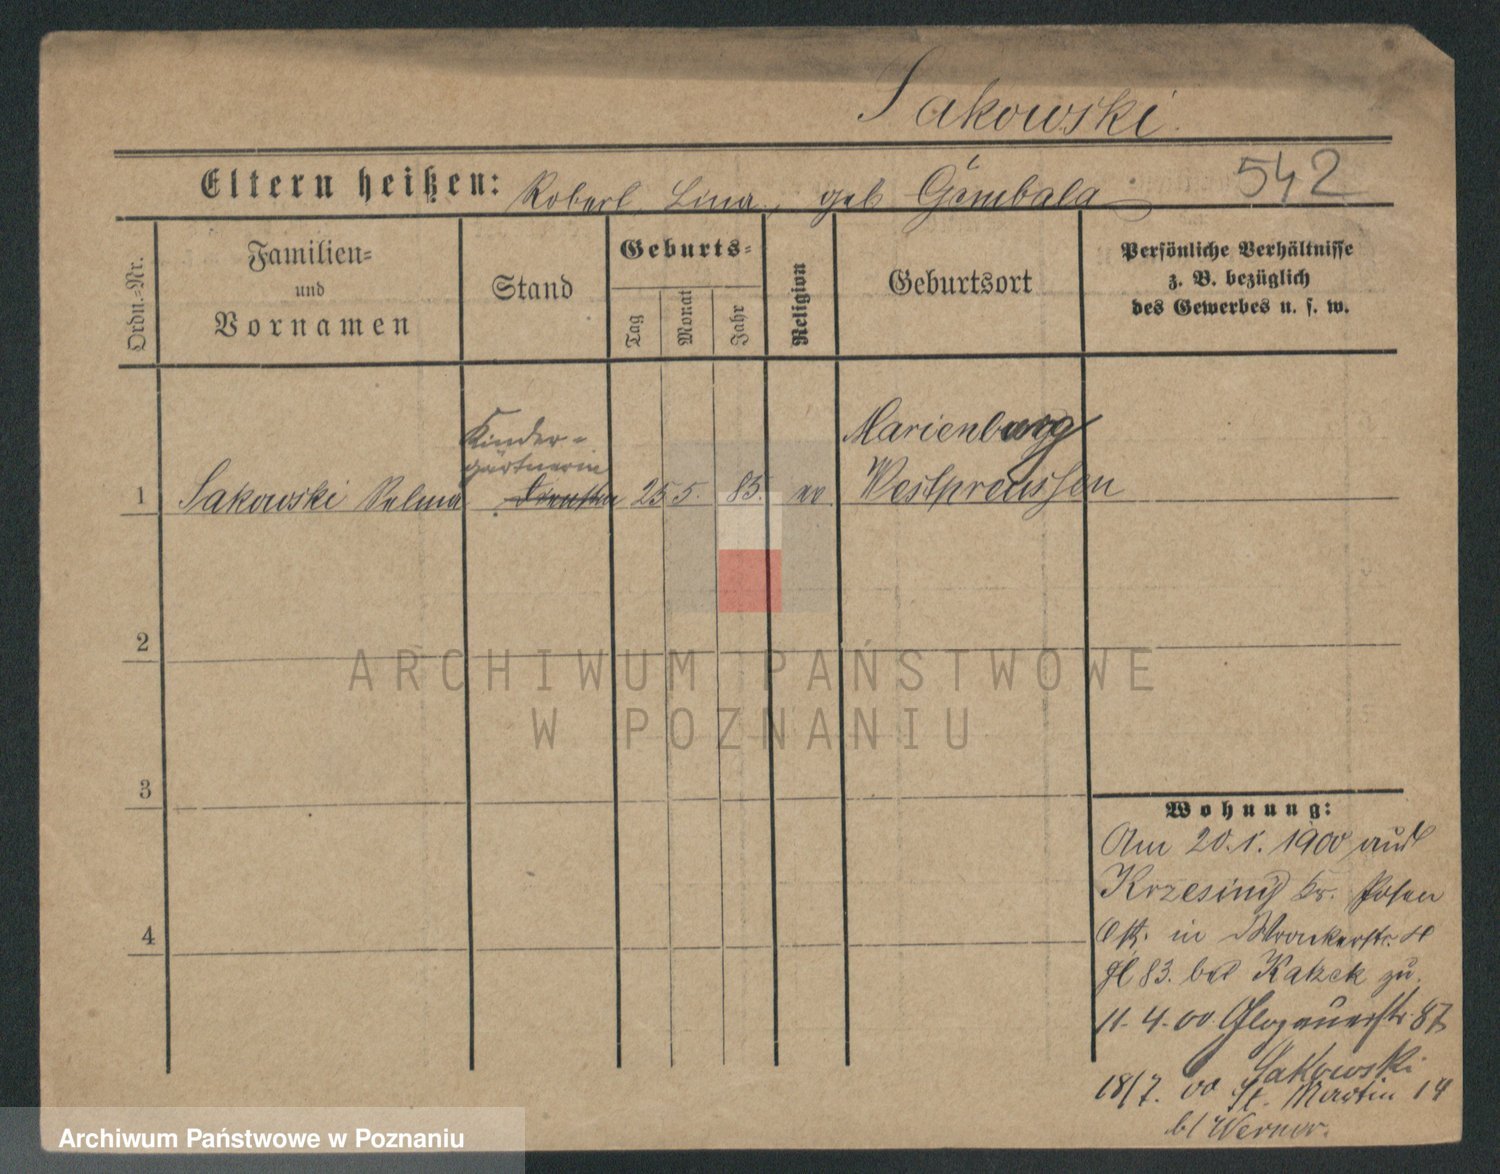 Sakowski.
Eltern heißen: Robert, Lina, geb Gembala
542
Ordn.-Nr.
Familien-
und
Vornamen
Stand
Geburts-
Tag
Monat
Jahr
Religion
Geburtsort
Persönliche Verhältnisse
z. B. bezüglich
des Gewerbes u. s. w.
Kinder-
gärtnerin
Marienburg
1 Sakowski Selma 25 5. 85. ev Westpreussen
2
3
4
Wohnung:
Am 20.1.1900 aus
Krzesiny Kr. Posen
Ost. in Wronkerstr.
83. bei Katzek zu.
11-4-00 Glogauerstr. 87
Sakowski
18/7. 00 St. Martin 14
b/ Werner.
ARCHIWUM PAŃSTWOWE
W POZNANIU
Archiwum Państwowe w Poznaniu